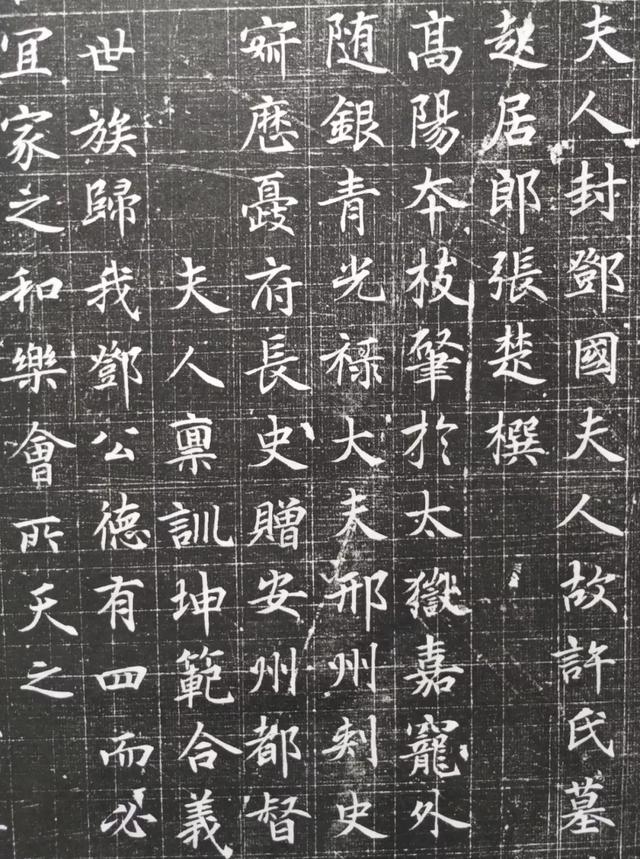 夫人封鄧國夫人故許氏墓
起居郎張楚撰
髙陽夲枝肇於太嶽嘉寵外
随銀青光禄大夫邢州刾史
歷夔府長史贈安州都督
夫人稟訓坤範合義
世族歸我鄧公德有四而必
宜家之和樂會所天之